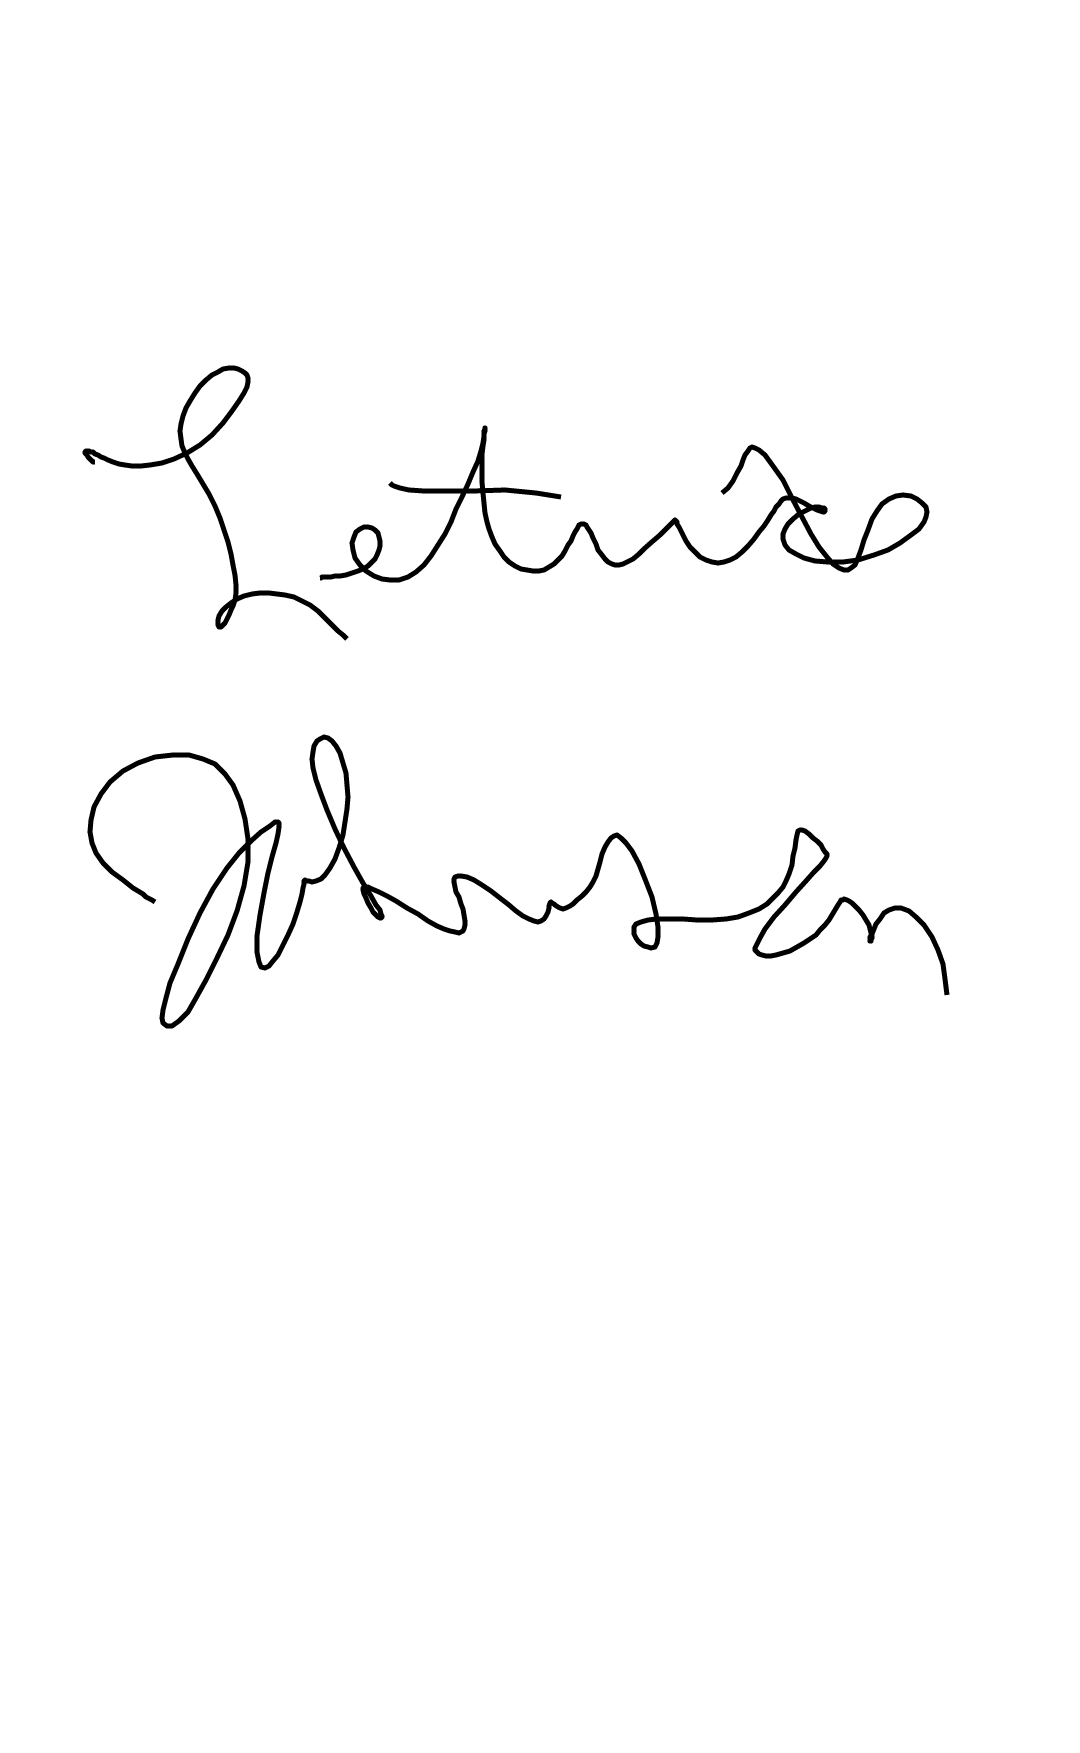 Letrice
Johnson